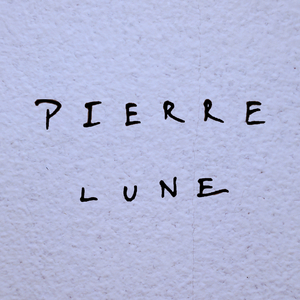 PIERRE
LUNE